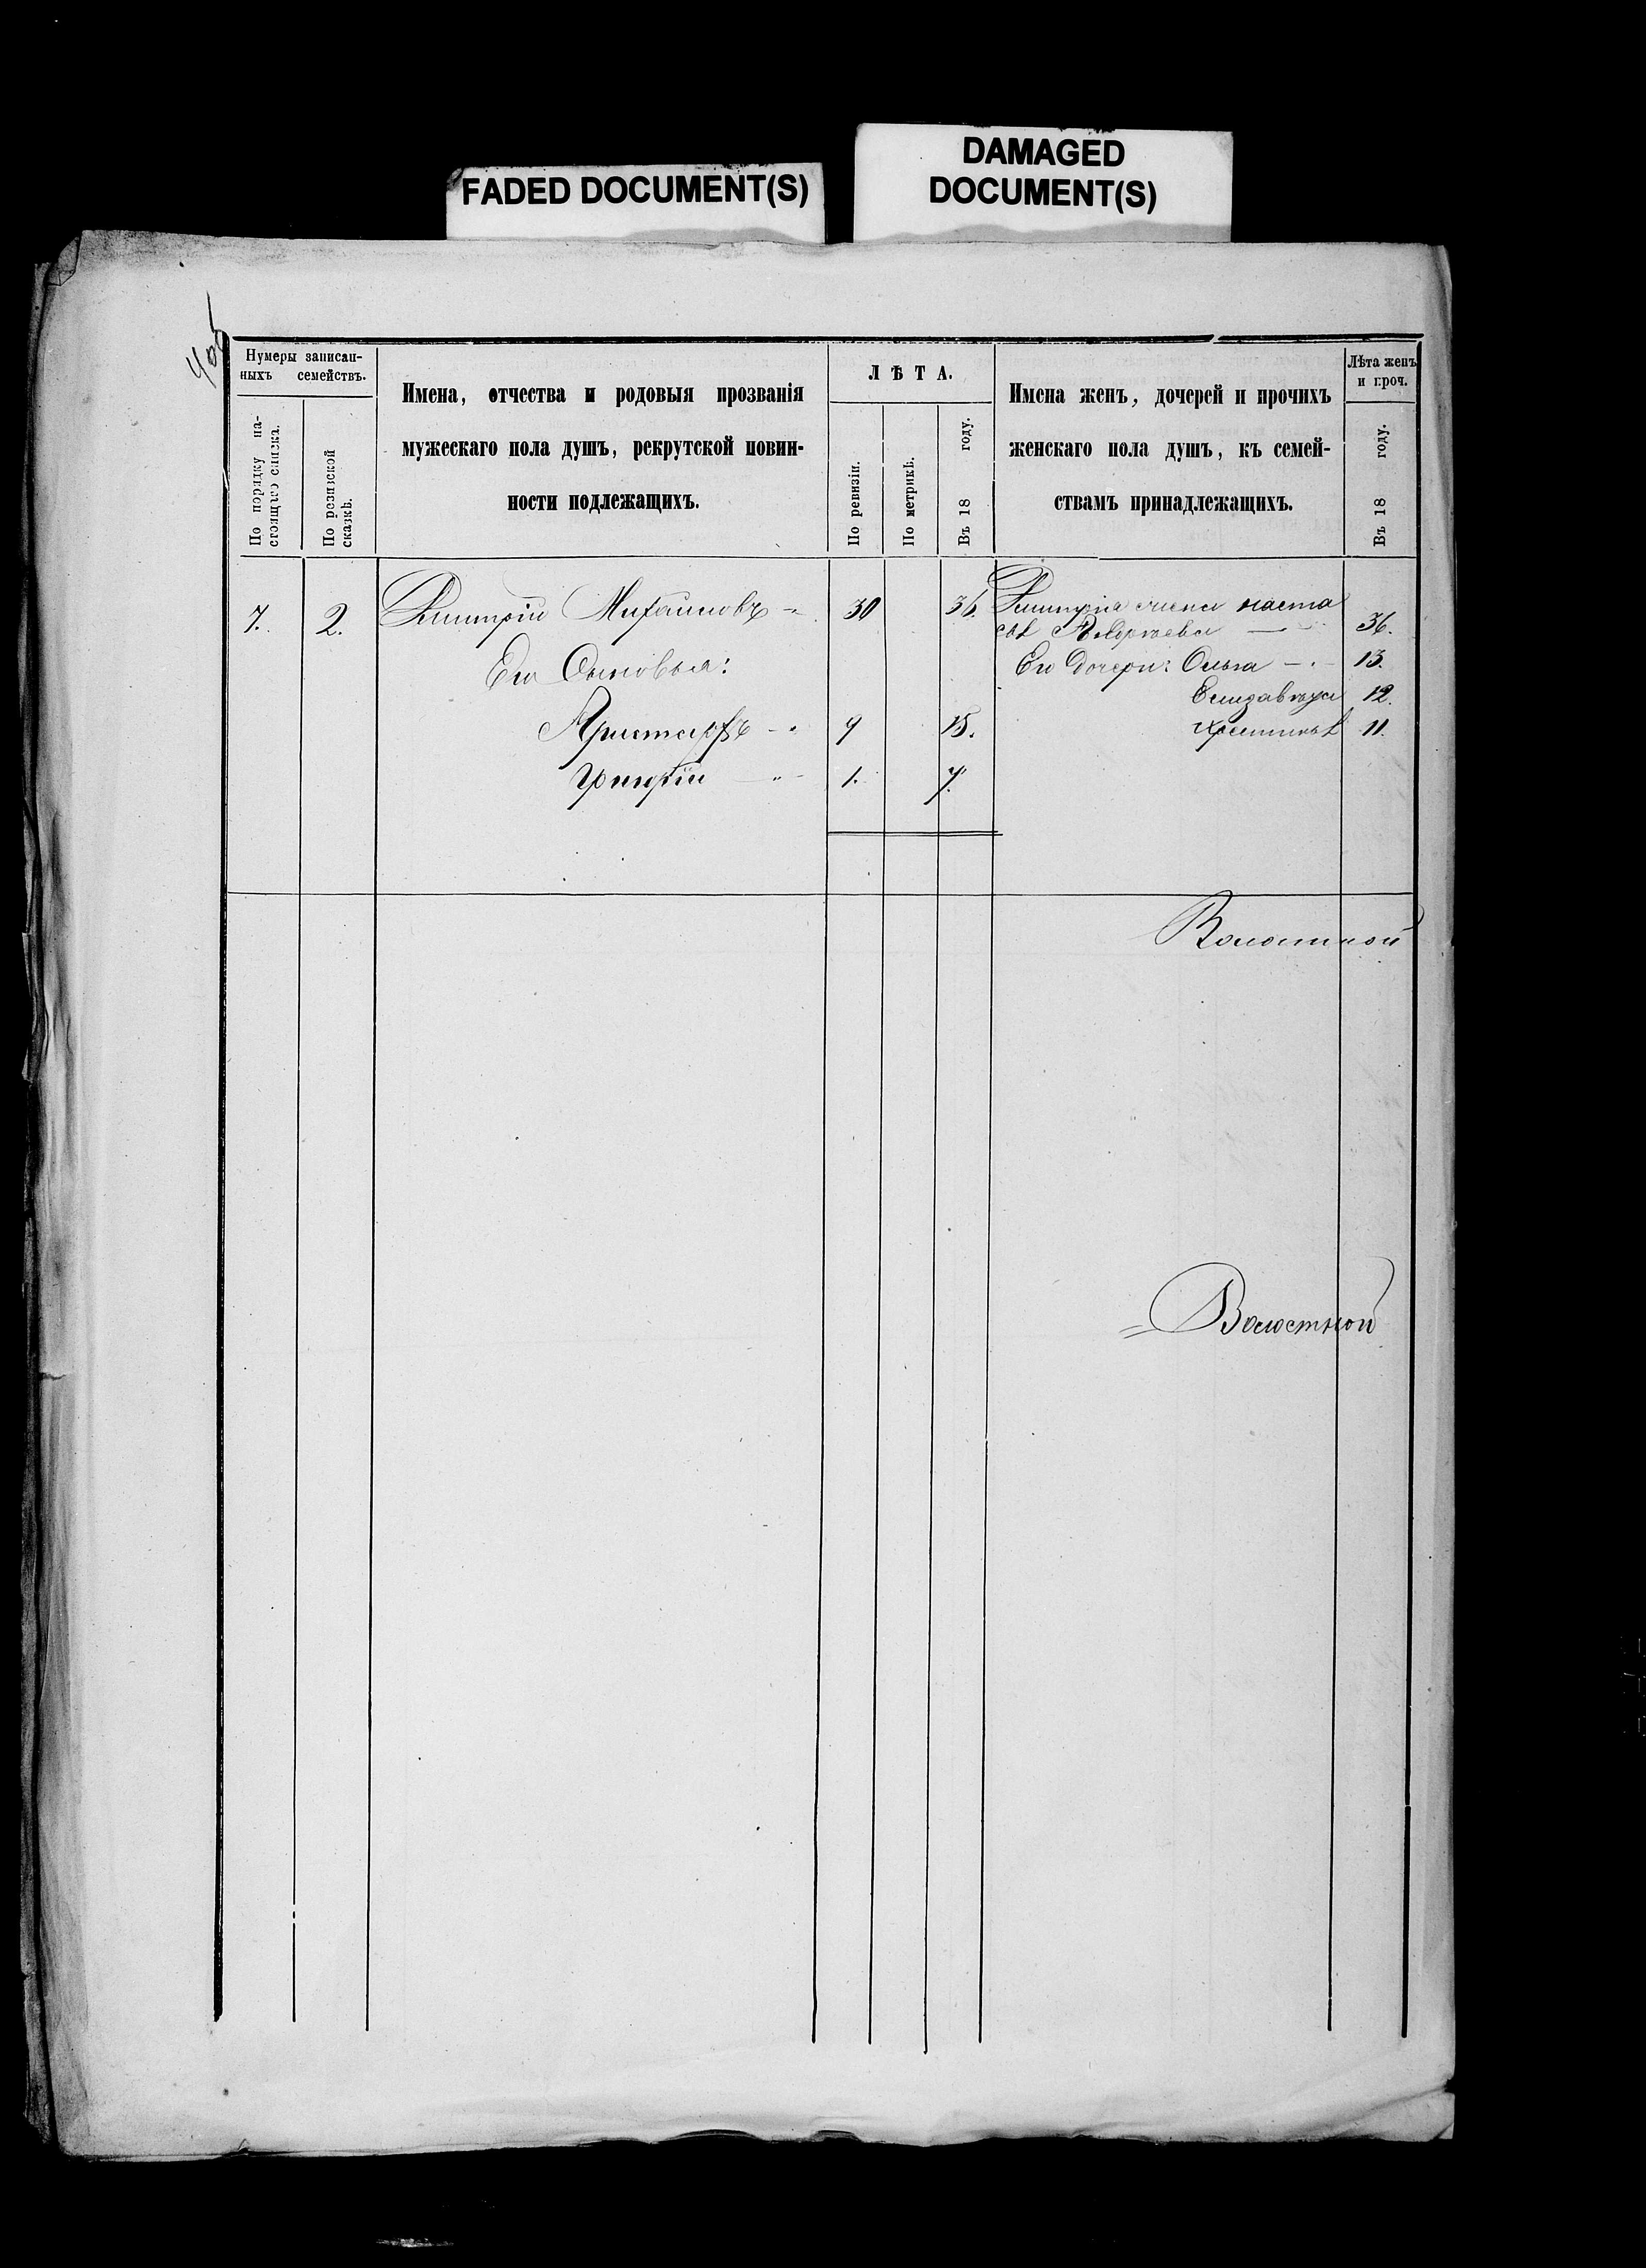 FADED DOCUMENT(S)
DAMAGED
DOCUMENT(S)
Нумеры записан-
ныхъ семействъ.
По порядку на-
стоящаго списка.
По ревизской
сказкѣ.
Имена, отчества и родовыя прозванія
мужескаго пола душъ, рекрутской повин-
ности подлежащихъ.
ЛѢТА.
По ревизіи.
По метрикѣ.
Въ 18 году.
Имена женъ, дочерей и прочихъ
женскаго пола душъ, къ семей-
ствамъ принадлежащихъ.
Лѣта женъ
и проч.
Въ 18 году.
7. 2. Дмитрій Михаиловъ 30 36. Дмитрія жена наста
сья 36.
Его Сыновья: Его дочери: Ольга 13.
Елизавета 12.
Аристархъ 9 15. 11.
Григорій 1. 7.
Волостной
Волостной